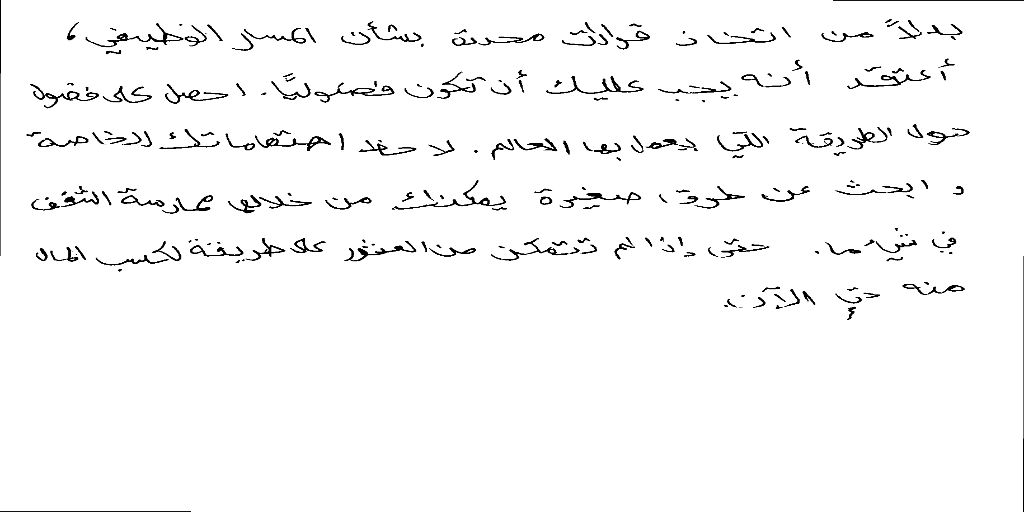 بدلاً من اتخاذ قرارات محددة بشأن المسار الوظيفي،
أعتقد أنه يجب عليك أن تكون فضوليًا. احصل على فضول
حول الطريقة التي يعمل بها العالم. لاحظ اهتماماتك الخاصة
وابحث عن طرق صغيرة يمكنك من خلالها ممارسة الشغف
في شيء ما. حتى إذا لم تتمكن من العثور على طريقة لكسب المال
منه حتى الآن.